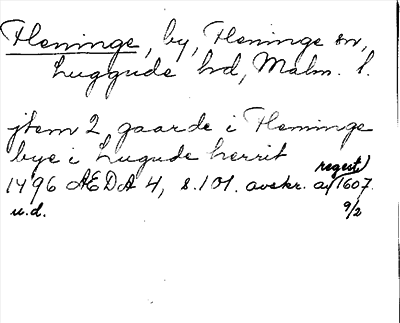 Fleninge, by, Fleninge sn,
Luggude hd, Malm. l.
jtem 2 gaarde i Fleninge
bye i Lugude herrit
regest)
1496 ÆDA 4, s. 101. avskr. af 1607.
u.d. 9/2